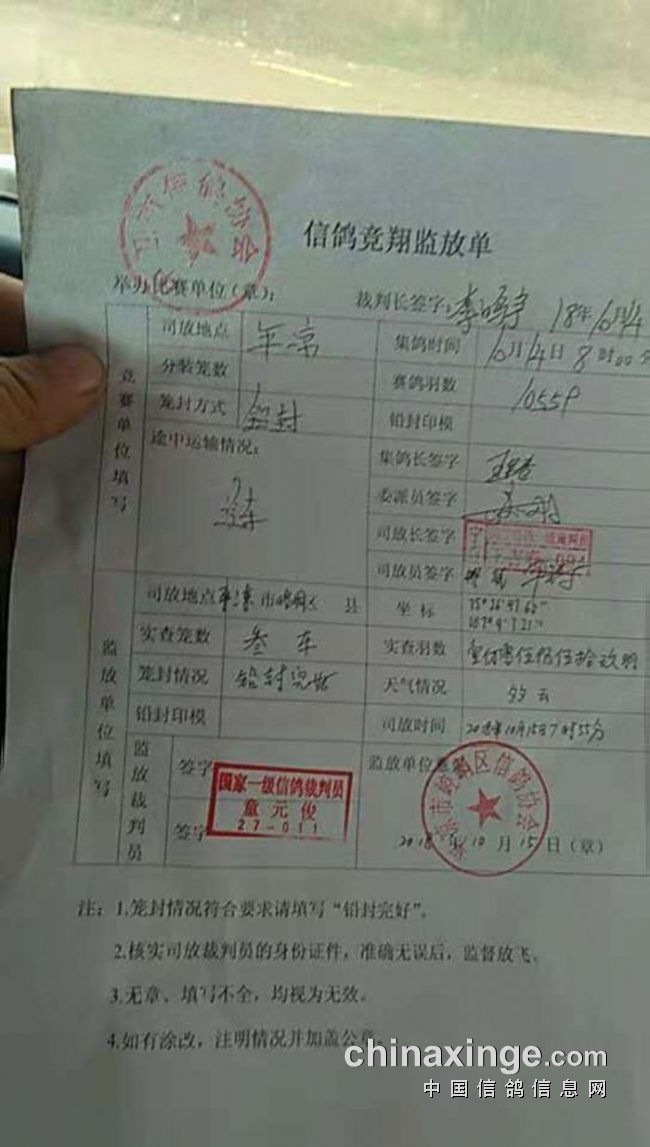 信鸽协会
信鸽竞翔监放单
举办比赛单位(章): 裁判长签字: 18年10月14
竞赛单位填写
司放地点 平凉 集鸽时间 10月14日8时00分
分装笼数 赛鸽羽数 10559
笼封方式 铅封 铅封印模
途中运输情况: 集鸽长签字
汽车 委派员签字
司放长签字
司放员签字
监放单位填写
司放地点 平凉市崆峒区 县 坐标
实查笼数 叁车 实查羽数
笼封情况 铅封完好 天气情况 多云
铅封印模 司放时间 2018年10月15日7时55分
监放裁判员 签字 监放单位
国家一级信鸽裁判员
童元俊
27-011
签字
平凉市崆峒区信鸽协会
2018年10月15日(章)
注: 1.笼封情况符合要求请填写“铅封完好”。
2.核实司放裁判员的身份证件，准确无误后，监督放飞。
3.无章、填写不全，均视为无效。
4.如有涂改，注明情况并加盖公章。
chinaxinge.com
中国信鸽信息网